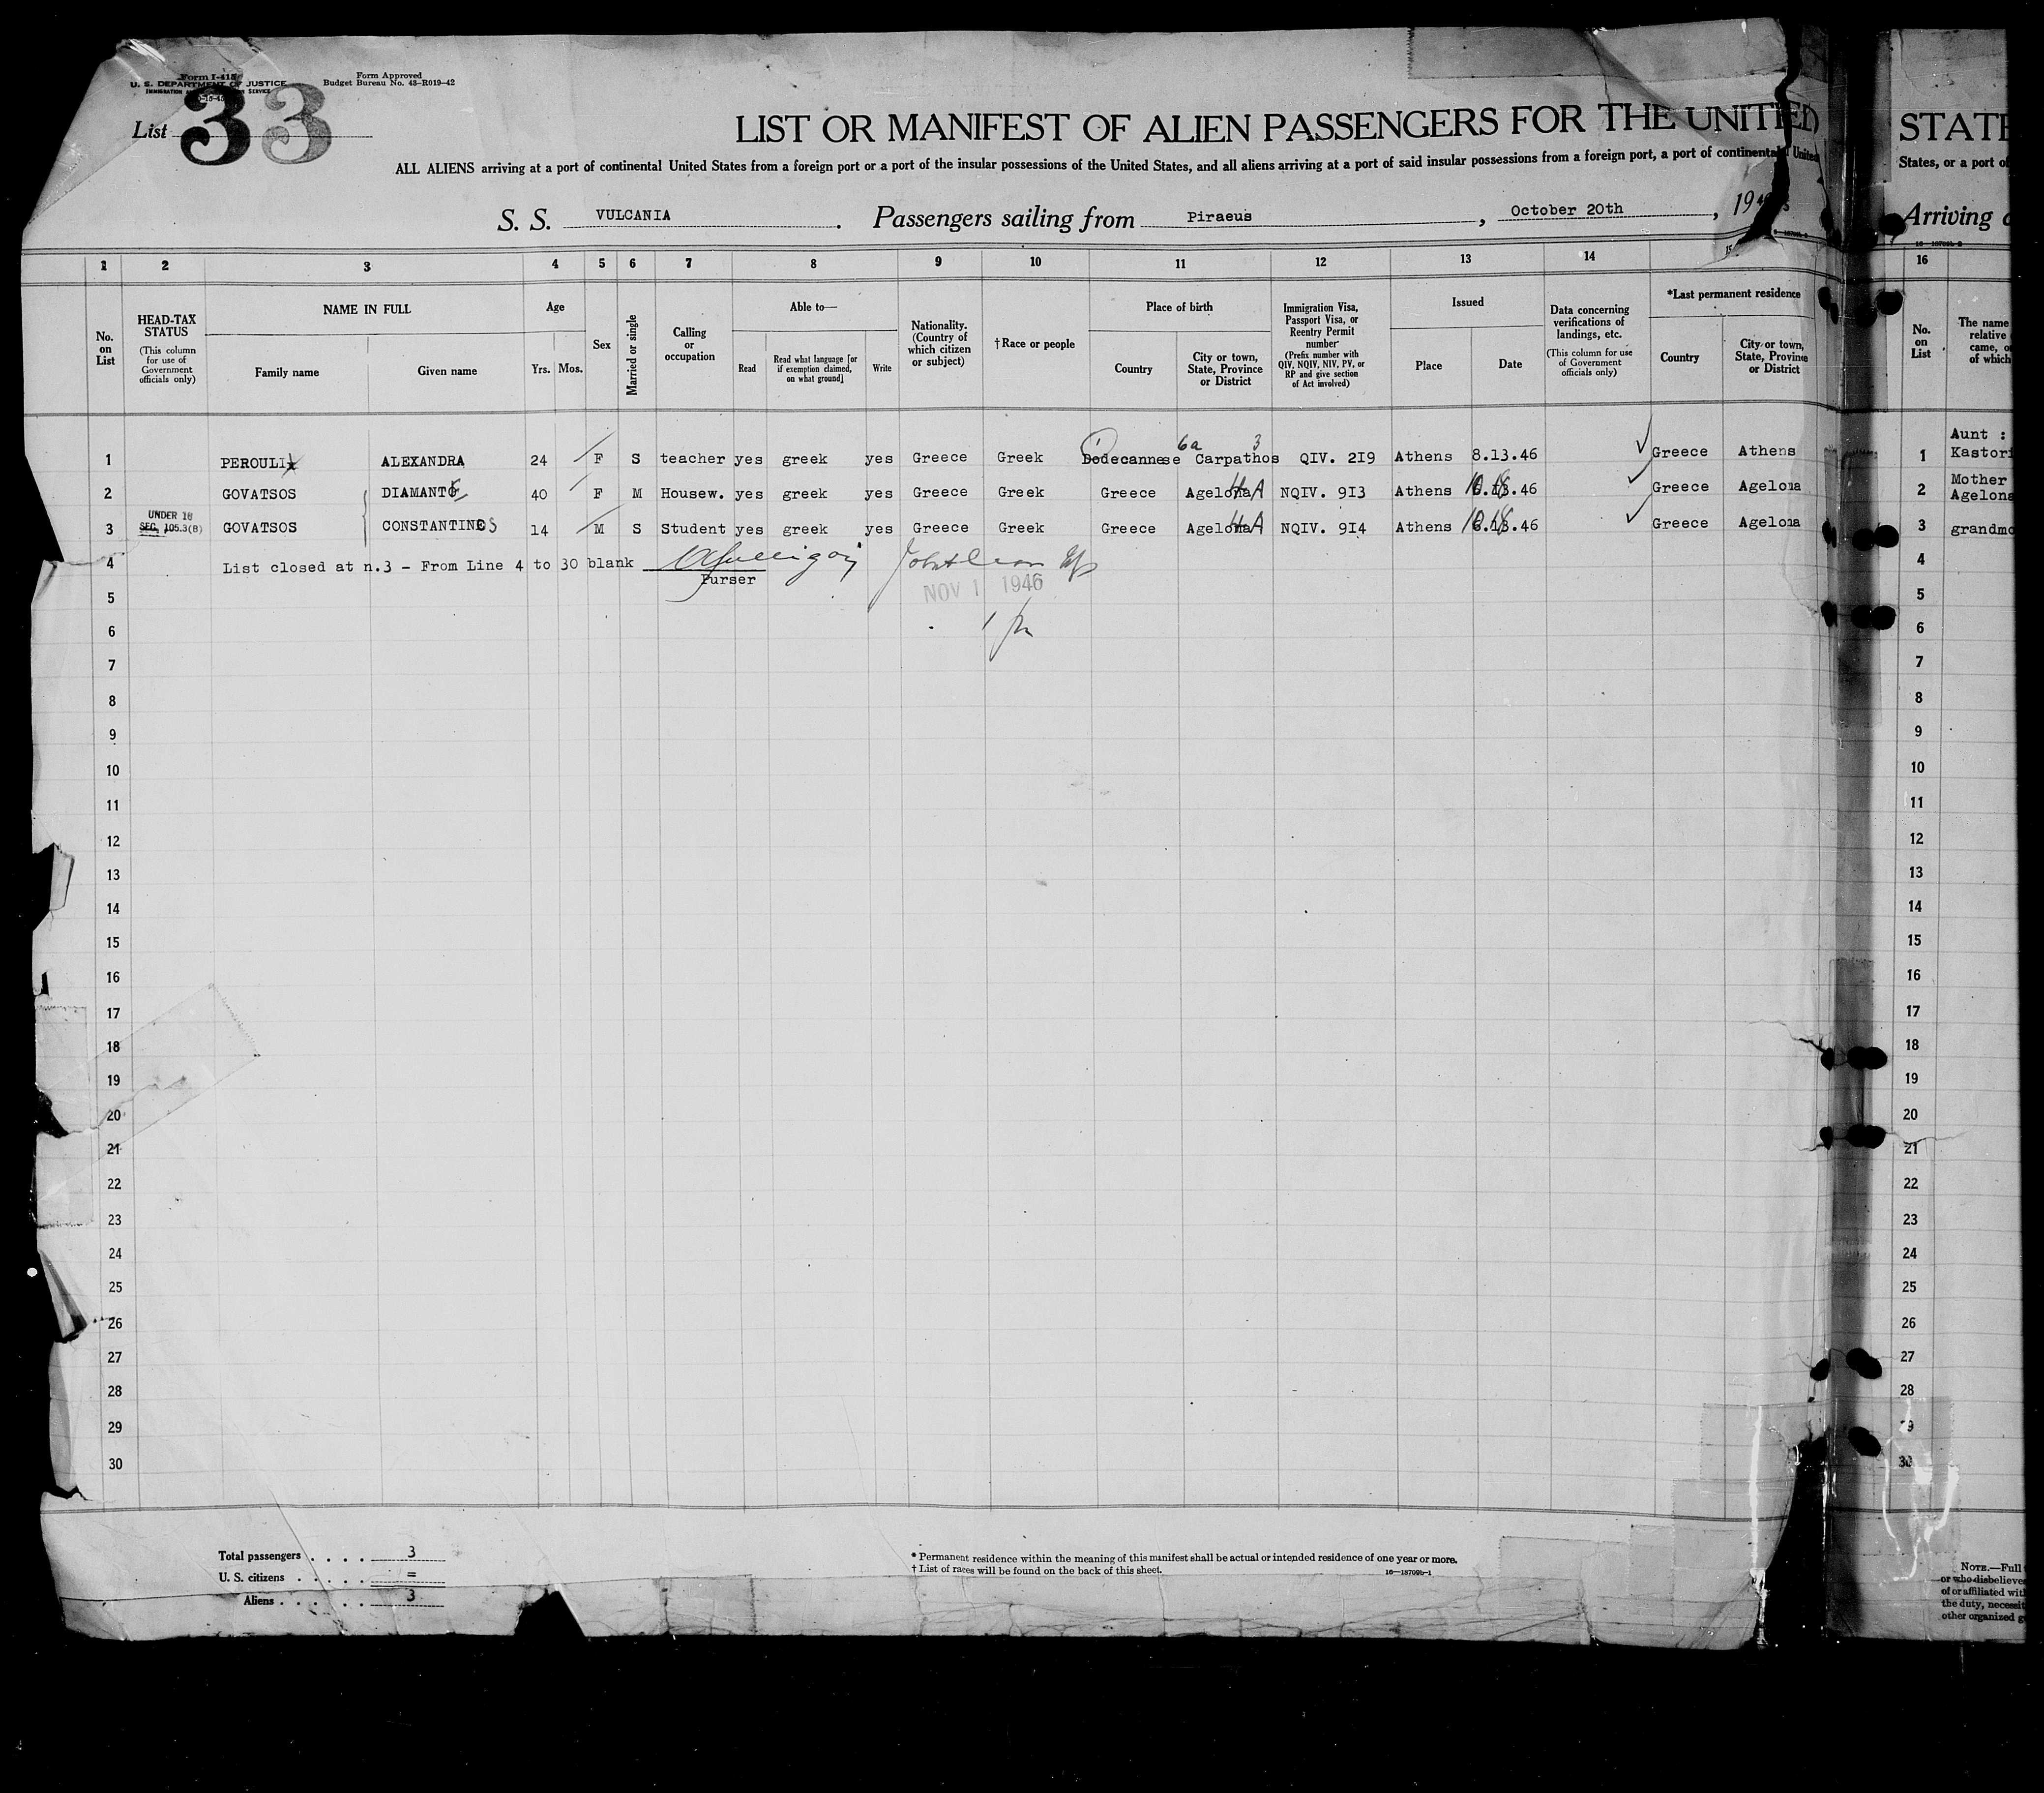 Form I-415
U. S. DEPARTMENT OF JUSTICE
IMMIGRATION SERVICE
Form Approved
Budget Bureau No. 43-R019-42
List 33
LIST OR MANIFEST OF ALIEN PASSENGERS FOR THE UNITED
STATE
ALL ALIENS arriving at a port of continental United States from a foreign port or a port of the insular possessions of the United States, and all aliens arriving at a port of said insular possessions from a foreign port, a port of continental United
States, or a port of
S. S. VULCANIA. Passengers sailing from Piraeus, October 20th, 194
Arriving
1 2 3 4 5 6 7 8 9 10 11 12 13 14 15 16
No. on List
HEAD-TAX STATUS
(This column for use of Government officials only)
NAME IN FULL
Family name
Given name
Age
Yrs. Mos.
Sex
Married or single
Calling or occupation
Able to—
Read
Read what language [or if exemption claimed, on what ground]
Write
Nationality. (Country of which citizen or subject)
†Race or people
Place of birth
Country
City or town, State, Province or District
Immigration Visa, Passport Visa, or Reentry Permit number
(Prefix number with QIV, NQIV, NIV, PV, or RP and give section of Act involved)
Issued
Place
Date
Data concerning verifications of landings, etc.
(This column for use of Government officials only)
*Last permanent residence
Country
City or town, State, Province or District
No. on List
The name
relative
came, o
of which
6a 3
1 PEROULI ALEXANDRA 24 F S teacher yes greek yes Greece Greek Dodecannese Carpathos QIV. 219 Athens 8.13.46 Greece Athens 1 Aunt : Kastori
2 GOVATSOS DIAMANTE 40 F M Housew. yes greek yes Greece Greek Greece NQIV. 913 Athens Greece 2 Mother Agelona
UNDER 16
SEC. 105.3(B)
3 GOVATSOS CONSTANTINOS 14 M S Student yes greek yes Greece Greek Greece NQIV. 914 Athens Greece 3 grandmo
4 List closed at n.3 - From Line 4 to 30 blank 4
Purser
NOV 1 1946
5 5
6 6
7 7
8 8
9 9
10 10
11 11
12 12
13 13
14 14
15 15
16 16
17 17
18 18
19 19
20 20
21 21
22 22
23 23
24 24
25 25
26 26
27 27
28 28
29 9
30 30
Total passengers . . . . 3
U. S. citizens . . . . . =
Aliens . . . . . 3
* Permanent residence within the meaning of this manifest shall be actual or intended residence of one year or more.
† List of races will be found on the back of this sheet.
16—18709b-1
NOTE.—Full
or who disbelieve
of or affiliated wit
the duty, necessit
other organized g